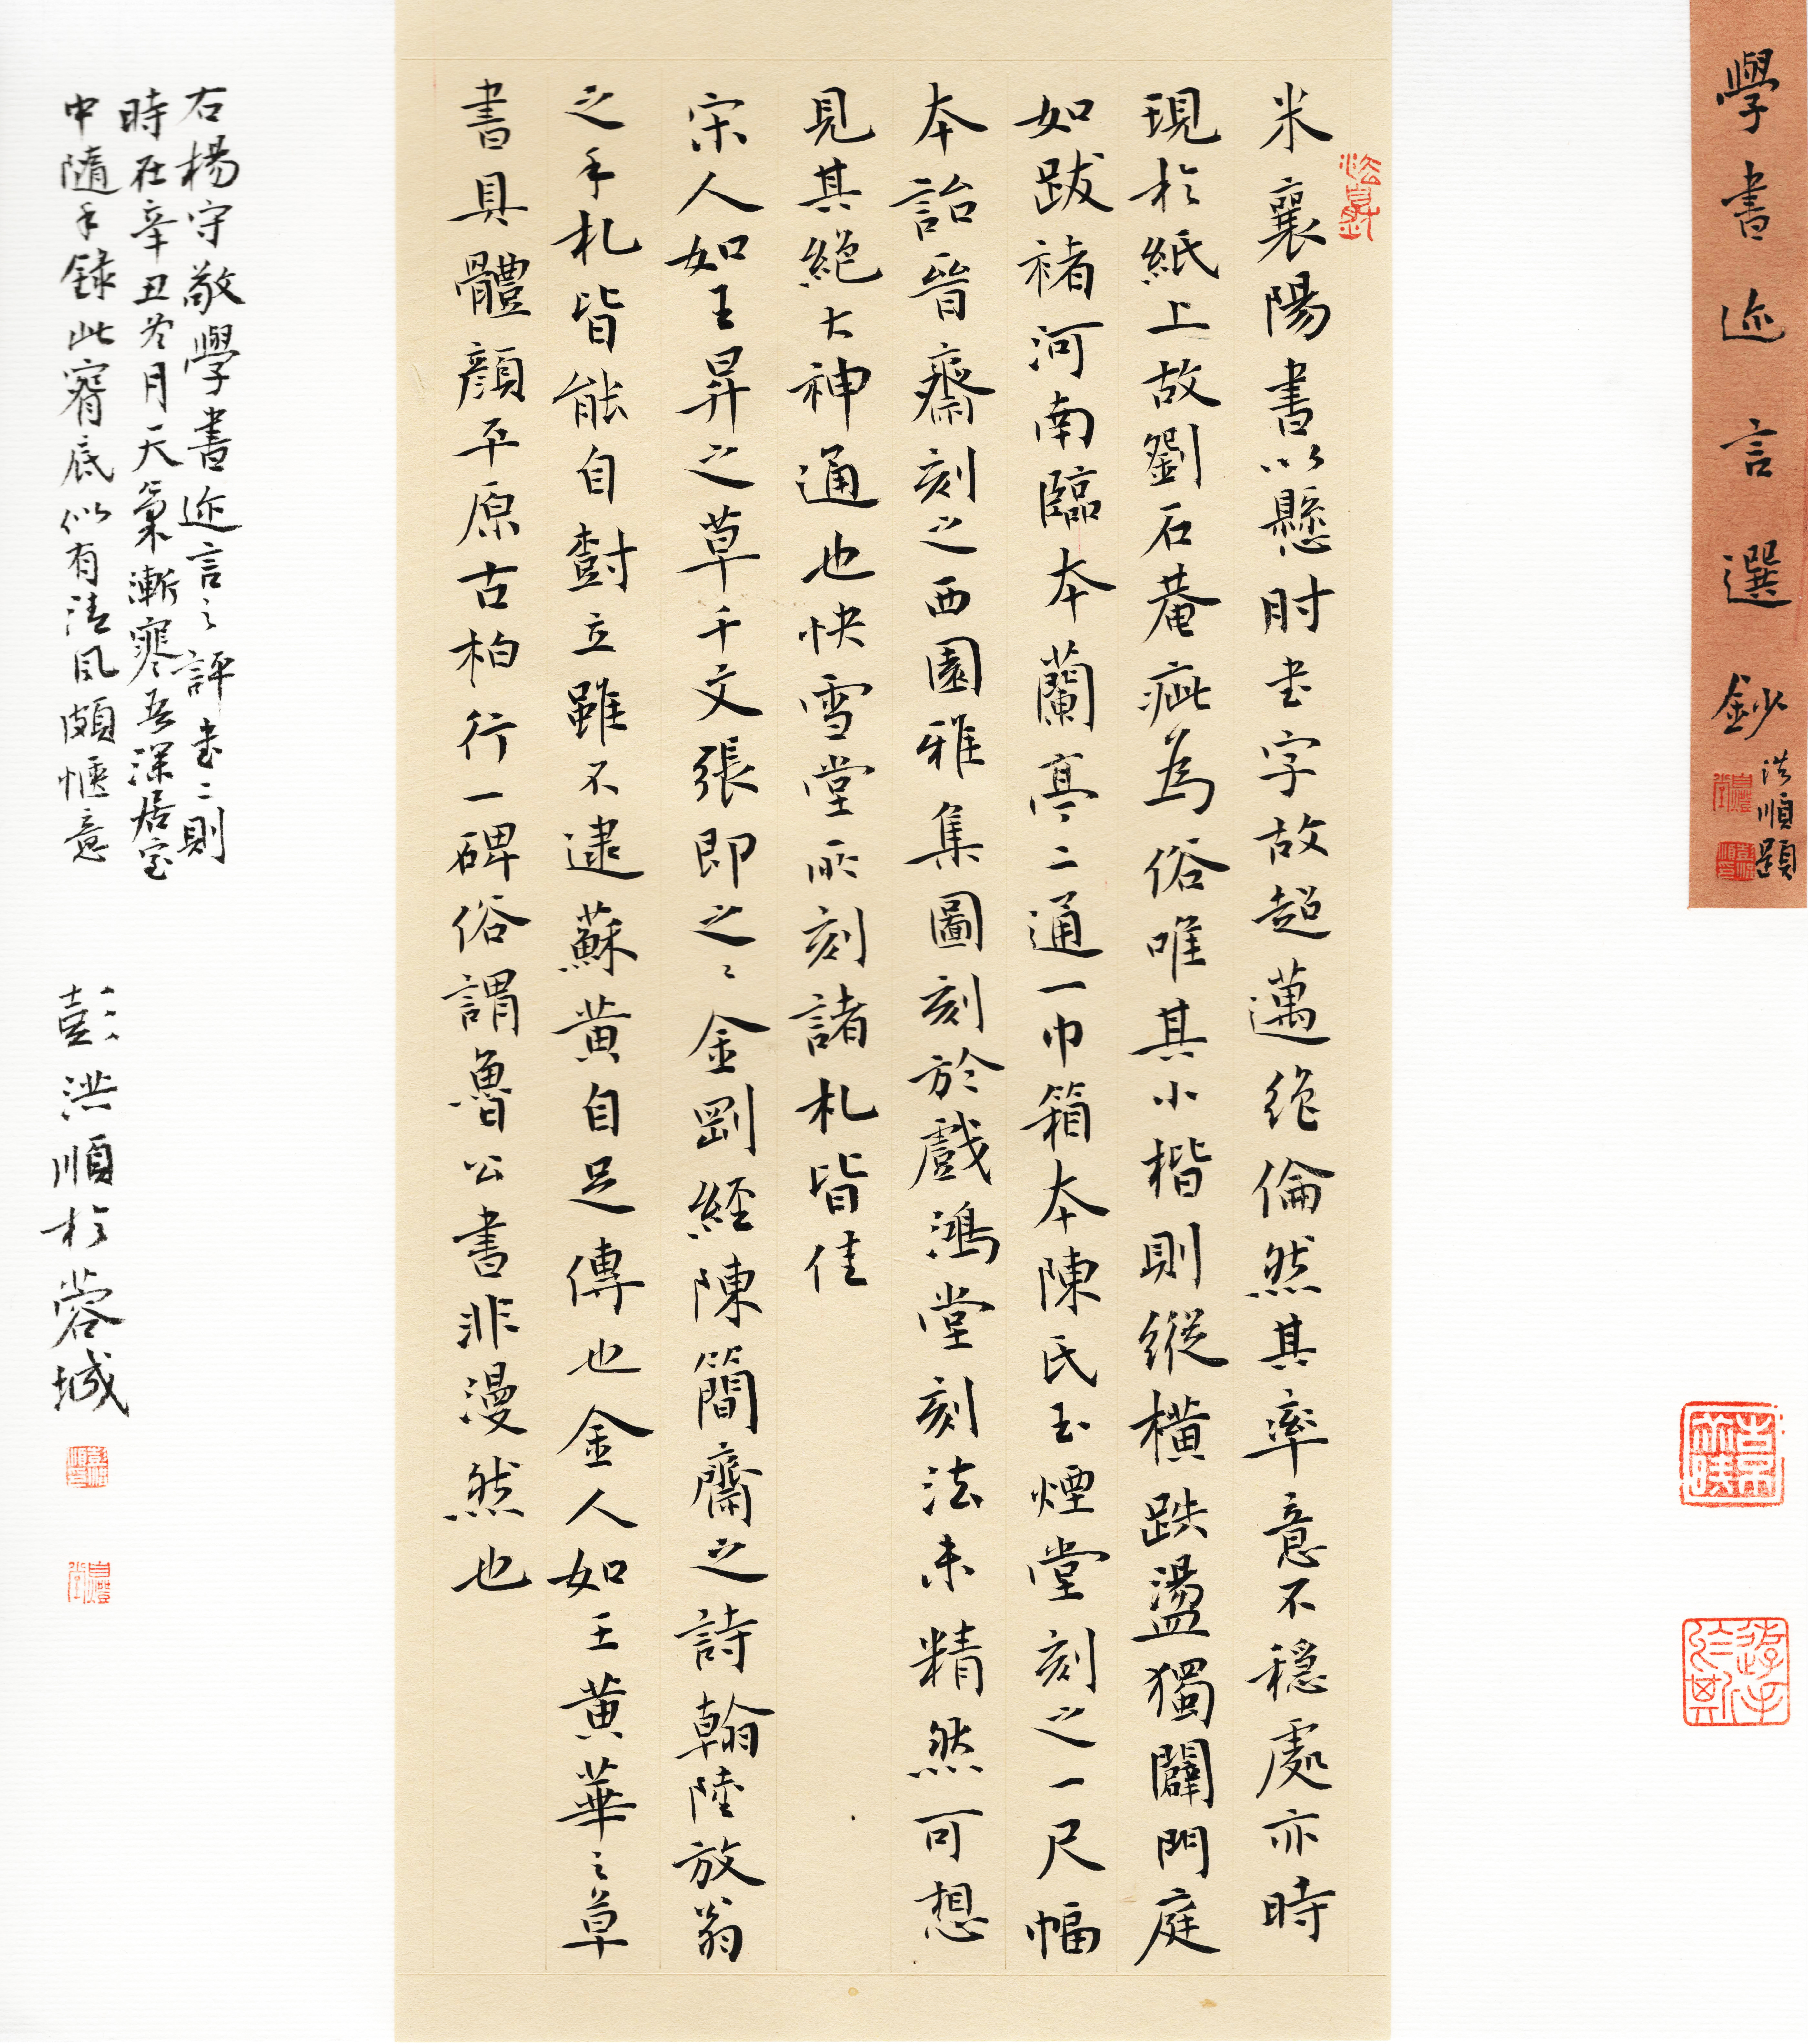 學書迩言選鈔
洪順題
米襄陽書以懸肘书字故超邁絶倫然其率意不穩處亦時
現於紙上故劉石菴疵為俗唯其小楷則縱橫跌盪獨闢門庭
如跋褚河南臨本蘭亭二通一巾箱本陳氏玉煙堂刻之一尺幅
本詒晉齋刻之西園雅集圖刻於戲鴻堂刻法未精然可想
見其絕大神通也快雪堂所刻諸札皆佳
宋人如王昇之草千文張即之之金剛經陳簡齋之詩翰陸放翁
之手札皆能自樹立雖不逮蘇黄自足傳也金人如王黄華之草
書具體顏平原古柏行一碑俗謂魯公書非漫然也
右楊守敬學書迩言之評书二則
時在辛丑冬月天氣漸寒吾深居室
中隨手録此窗底似有清風頗愜意
彭洪順於蓉城